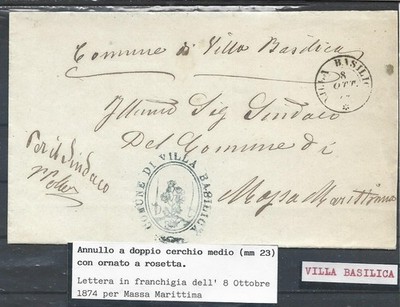 Comune di Villa Basilica
VILLA BASILIC
8
OTT.
Sig Sindaco
Del Comune di
Massa Marittima
Per il Sindaco
COMUNE DI VILLA BASILICA
Annullo a doppio cerchio medio (mm 23)
con ornato a rosetta.
Lettera in franchigia dell' 8 Ottobre
1874 per Massa Marittima
VILLA BASILICA